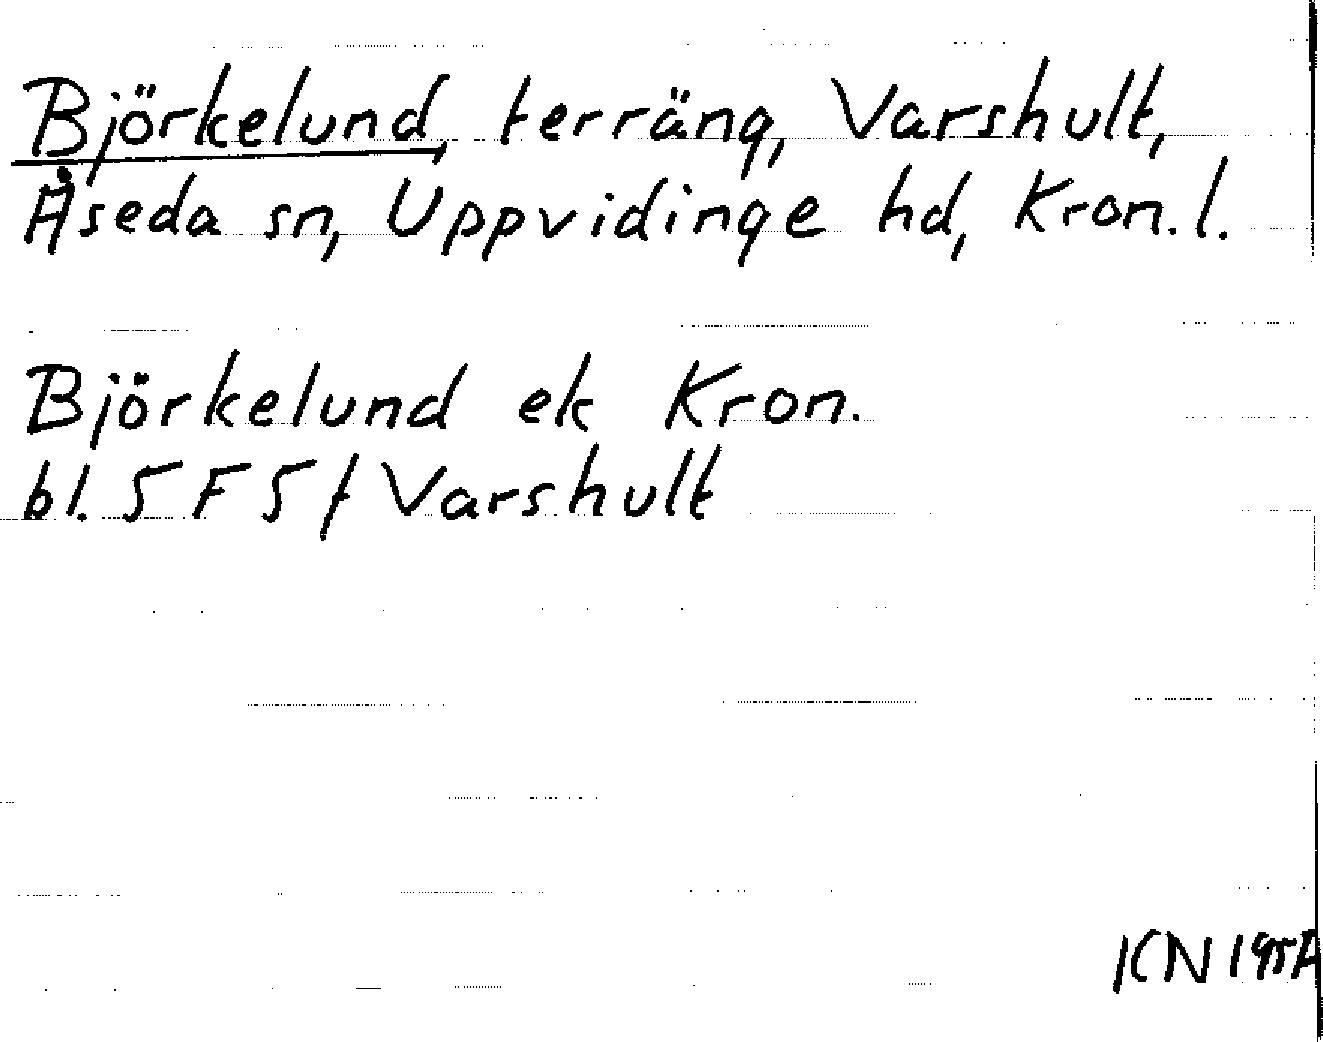 Björkelund, terräng, Varshult,
Åseda sn, Uppvidinge hd, Kron.l.
Björkelund ek Kron.
bl. 5 F 5 f Varshult
KN